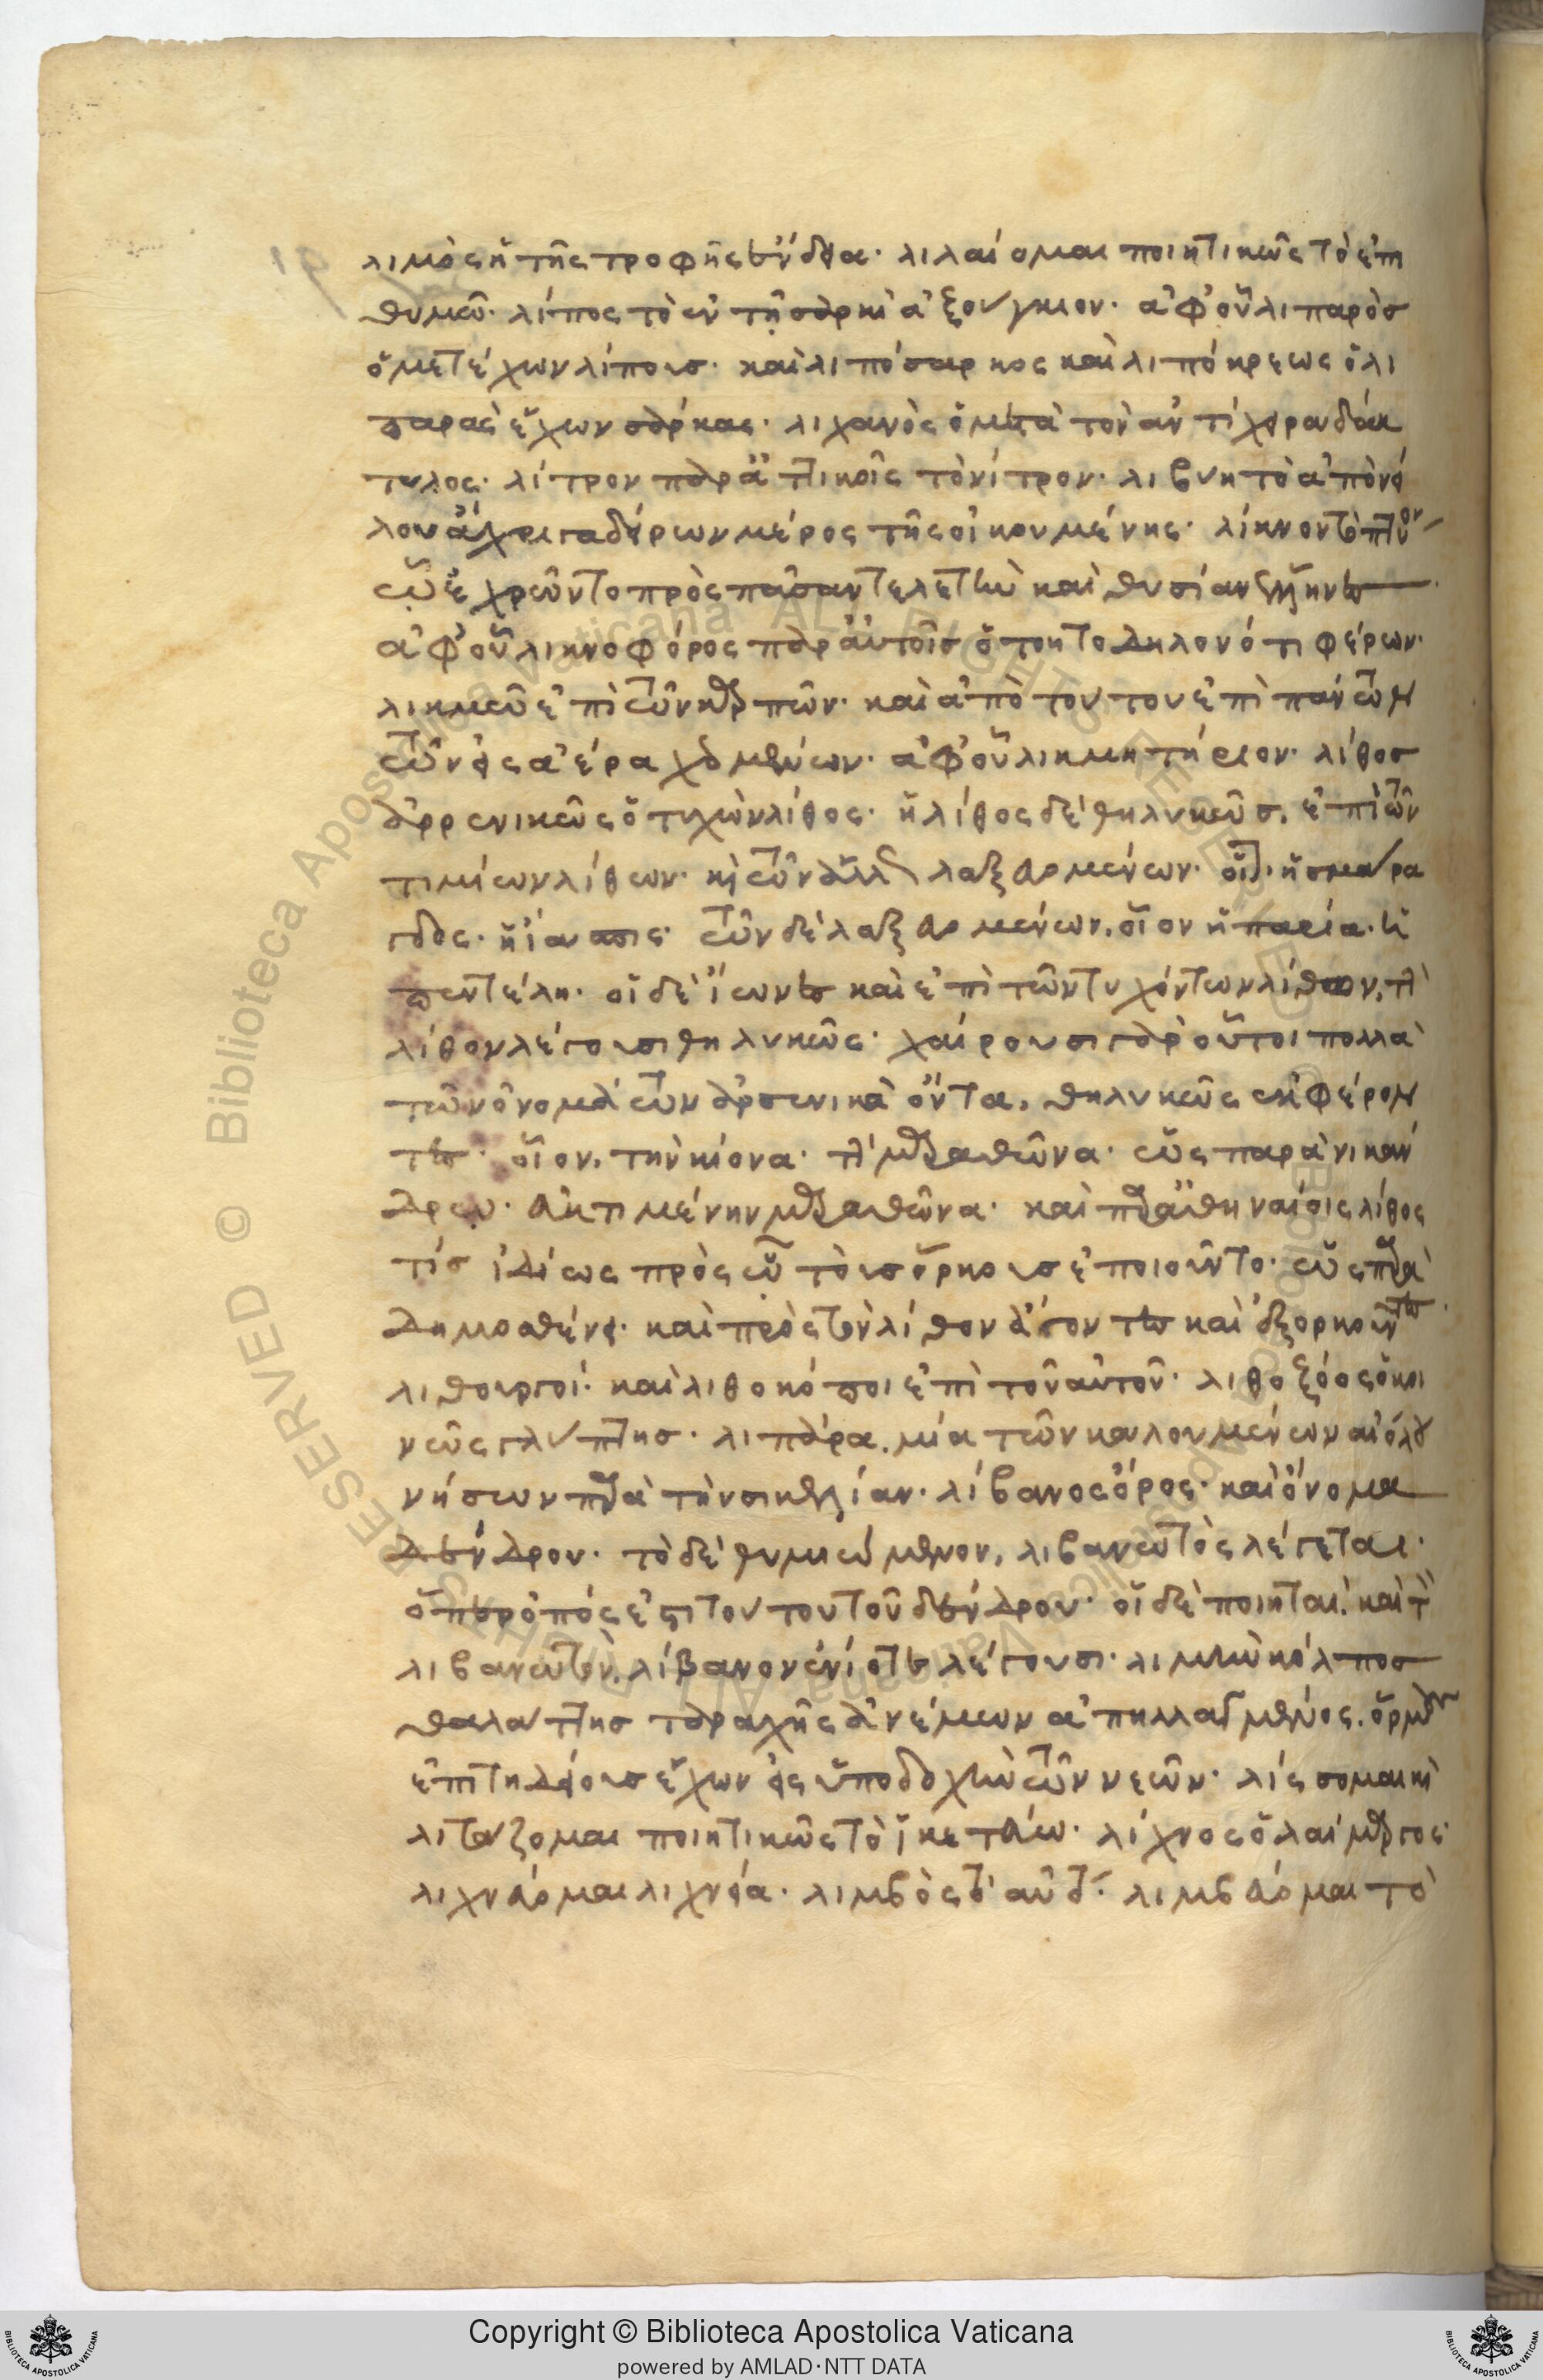 λιμὸς ἡ τῆς τροφῆς ἔνδεια· λιλαίομαι ποιητικῶς τὸ ἐπι
θυμῶ· λίπος τὸ ἐν τῇ σαρκὶ ἀξούγκιον· ἀφ' οὗ λιπαρὸσ
ὁ μετέχων λίπους· καὶ λιπόσαρκος καὶ λιπόκρεως ὁ λι
παρὰς ἔχων σάρκας· λιχανὸς ὁ μετὰ τὸν ἀντίχειρα δάκ
τυλος· λίτρον παρὰ ἀττικοῖς τὸ νίτρον· λιβύη τὸ ἀπὸ νεί
λου ἄχρι γαδείρων μέρος τῆς οἰκουμένης· λίκνον τὸ πτύον
ᾧ ἐχρῶντο πρὸς πᾶσαν τελετὴν καὶ θυσίαν ἕλληνες·
ἀφ' οὗ λικνοφόρος παρ' αὐτοῖσ ὁ τοῦτο δηλονότι φέρων·
λικμῶ ἐπὶ τῶν καρπῶν· καὶ ἀπὸ τούτου ἐπὶ πάντων
τῶν εἰς ἀέρα χεομένων· ἀφ' οὗ λικμητήριον· λίθοσ
ἀρρενικῶς ὁ τυχὼν λίθος· ἡ λίθος δὲ θηλυκῶσ, ἐπὶ τῶν
τιμίων λίθων· καὶ τῶν ἄλλων λαξευομένων· οἷον ἡ σμάρα
γδος· ἡ ἴασπις· τῶν δὲ λαξευομένων, οἷον ἡ παρία· ἡ
πεντέλη· οἱ δὲ ἴωνες καὶ ἐπὶ τῶν τυχόντων λίθων, τὴν
λίθον λέγουσι θηλυκῶς· χαίρουσι γὰρ οὗτοι πολλὰ
τῶν ὀνομάτων ἀρσενικὰ ὄντα, θηλυκῶς ἐκφέρον
τες· οἷον, τὴν κίονα· τὴν μαραθῶνα· ὡς παρὰ νικάν
δρου· εὐκτιμένην μαραθῶνα· καὶ παρ' ἀθηναίοις λίθος
τίσ ἰδίως πρὸς ᾧ τοὺσ ὅρκουσ ἐποιοῦντο· ὡς παρὰ
δημοσθένει· καὶ πρὸς τὸν λίθον ἄγοντες καὶ ἐξορκοῦντες·
λιθουργοί· καὶ λιθοκόποι ἐπὶ τοῦ αὐτοῦ· λιθοξόος ὁ κοι
νῶς γλύπτησ· λιπάρα, μία τῶν καλουμένων αἰόλου
νήσων παρὰ τὴν σικελίαν· λίβανος ὄρος· καὶ ὄνομα
δένδρου· τὸ δὲ θυμιώμενον, λιβανωτὸς λέγεται·
ὅπερ ὀπός ἐστι τούτου τοῦ δένδρου· οἱ δὲ ποιηταὶ, καὶ τὸν
λιβανωτὸν, λίβανον ἐνίοτε λέγουσι· λιμὴν κόλποσ
θαλάττησ ταραχῆς ἀνέμων ἀπηλλαγμένος, ὅρμον
ἐπιτηδείουσ ἔχων εἰς ὑποδοχὴν τῶν νεῶν· λίσσομαι καὶ
λιτάζομαι ποιητικῶς τὸ ἱκετεύω· λίχνος ὁ λαίμαργος·
λιχνεύομαι λιχνεία· λιμβὸς τὸ αὐτό· λιμβεύομαι τὸ